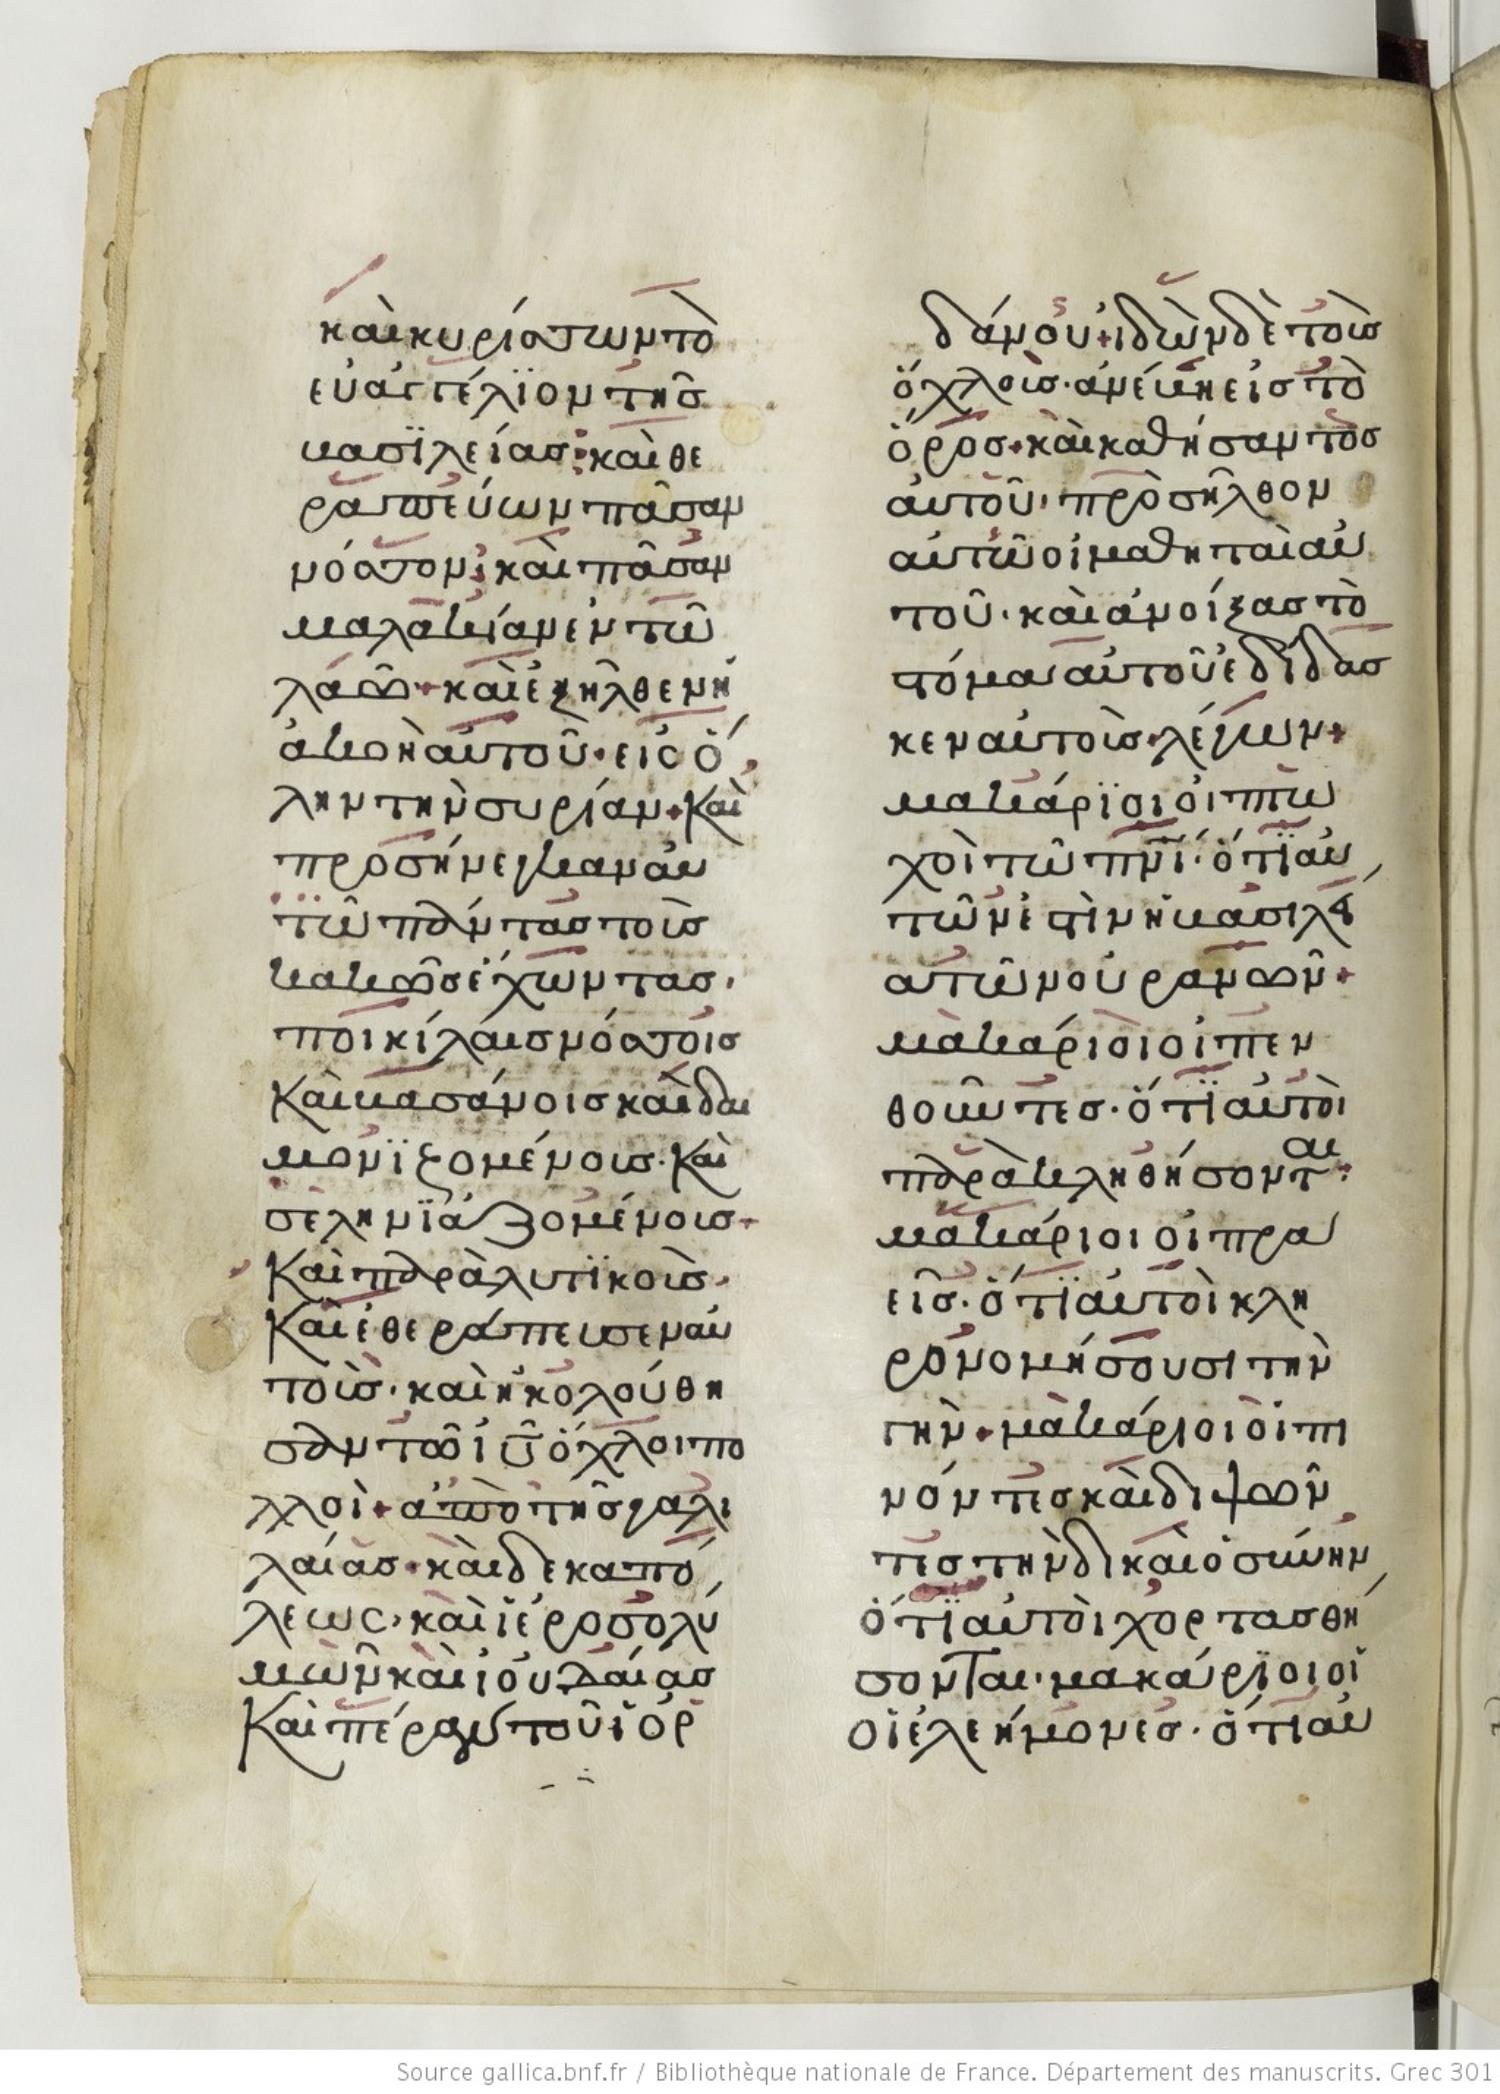 καὶ κυρίσσων τὸ
εὐαγγέλϊον τῆς
βασϊλείας· καὶ θε
ραπεύων πᾶσαν
νόσσον· καὶ πᾶσαν
μαλακίαν ἐν τῶ
λαῶ· καὶ ἐξῆλθεν ἡ
ἀκοὴ αὐτοῦ· εἰς ὅ
λην τὴν συρίαν· Καὶ
προσήνεγκαν αὐ
τῶ πάντας τοῖς
κακῶς ἔχωντας·
ποικίλαις νόσσοις
Καὶ βασάνοις καὶ δαι
μονϊζομένοις· Καὶ
σεληνϊαζομένοις·
Καὶ παραλυτϊκοῖς·
Καὶ ἐθεράπευσεν αὐ
τοῖς· καὶ ἠκολούθη
σαν τῶ ι͞υ ὄχλοι πο
λλοὶ· ἀπὸ τῆς γαλι
λαίας· καὶ δεκαπό
λεως· καὶ ϊεροσολύ
μων καὶ ϊουδαίας
Καὶ πέραν τοῦ ϊορ
δάνου· ἰδὼν δὲ τοῖς
ὄχλοις· ἀνέβη εἰς τὸ
ὄρος· καὶ καθήσαντος
αὐτοῦ· πρὸσῆλθον
αὐτῶ οἱ μαθηταὶ αὐ
τοῦ· καὶ ἀνοίξας τὸ
στόμα αὐτοῦ ἐδίδασ
κεν αὐτοῖς· λέγων·
μακάρϊοι οἱ πτω
χοὶ τῶ π͞ν͞ι· ὅτϊ αὐ
τῶν ἐστὶν ἡ βασιλεί
α τῶν οὐρανῶν·
μακάριοι οἱ πεν
θοῦντες· ὅτϊ αὐτοὶ
παρακληθήσονται·
μακάριοι οἱ πρα
εῖς· ὅτϊ αὐτοὶ κλη
ρονομήσουσι τὴν
γὴν· μακάριοι οἱ πι
νόντες καὶ διψῶν
τες τὴν δικαιοσύνην
ὅτϊ αὐτοὶ χορτασθή
σονται· μακάρϊοι οἱ
οἱ ἐλεήμονες· ὅτι αὐ
Source gallica.bnf.fr / Bibliothèque nationale de France. Département des manuscrits. Grec 301